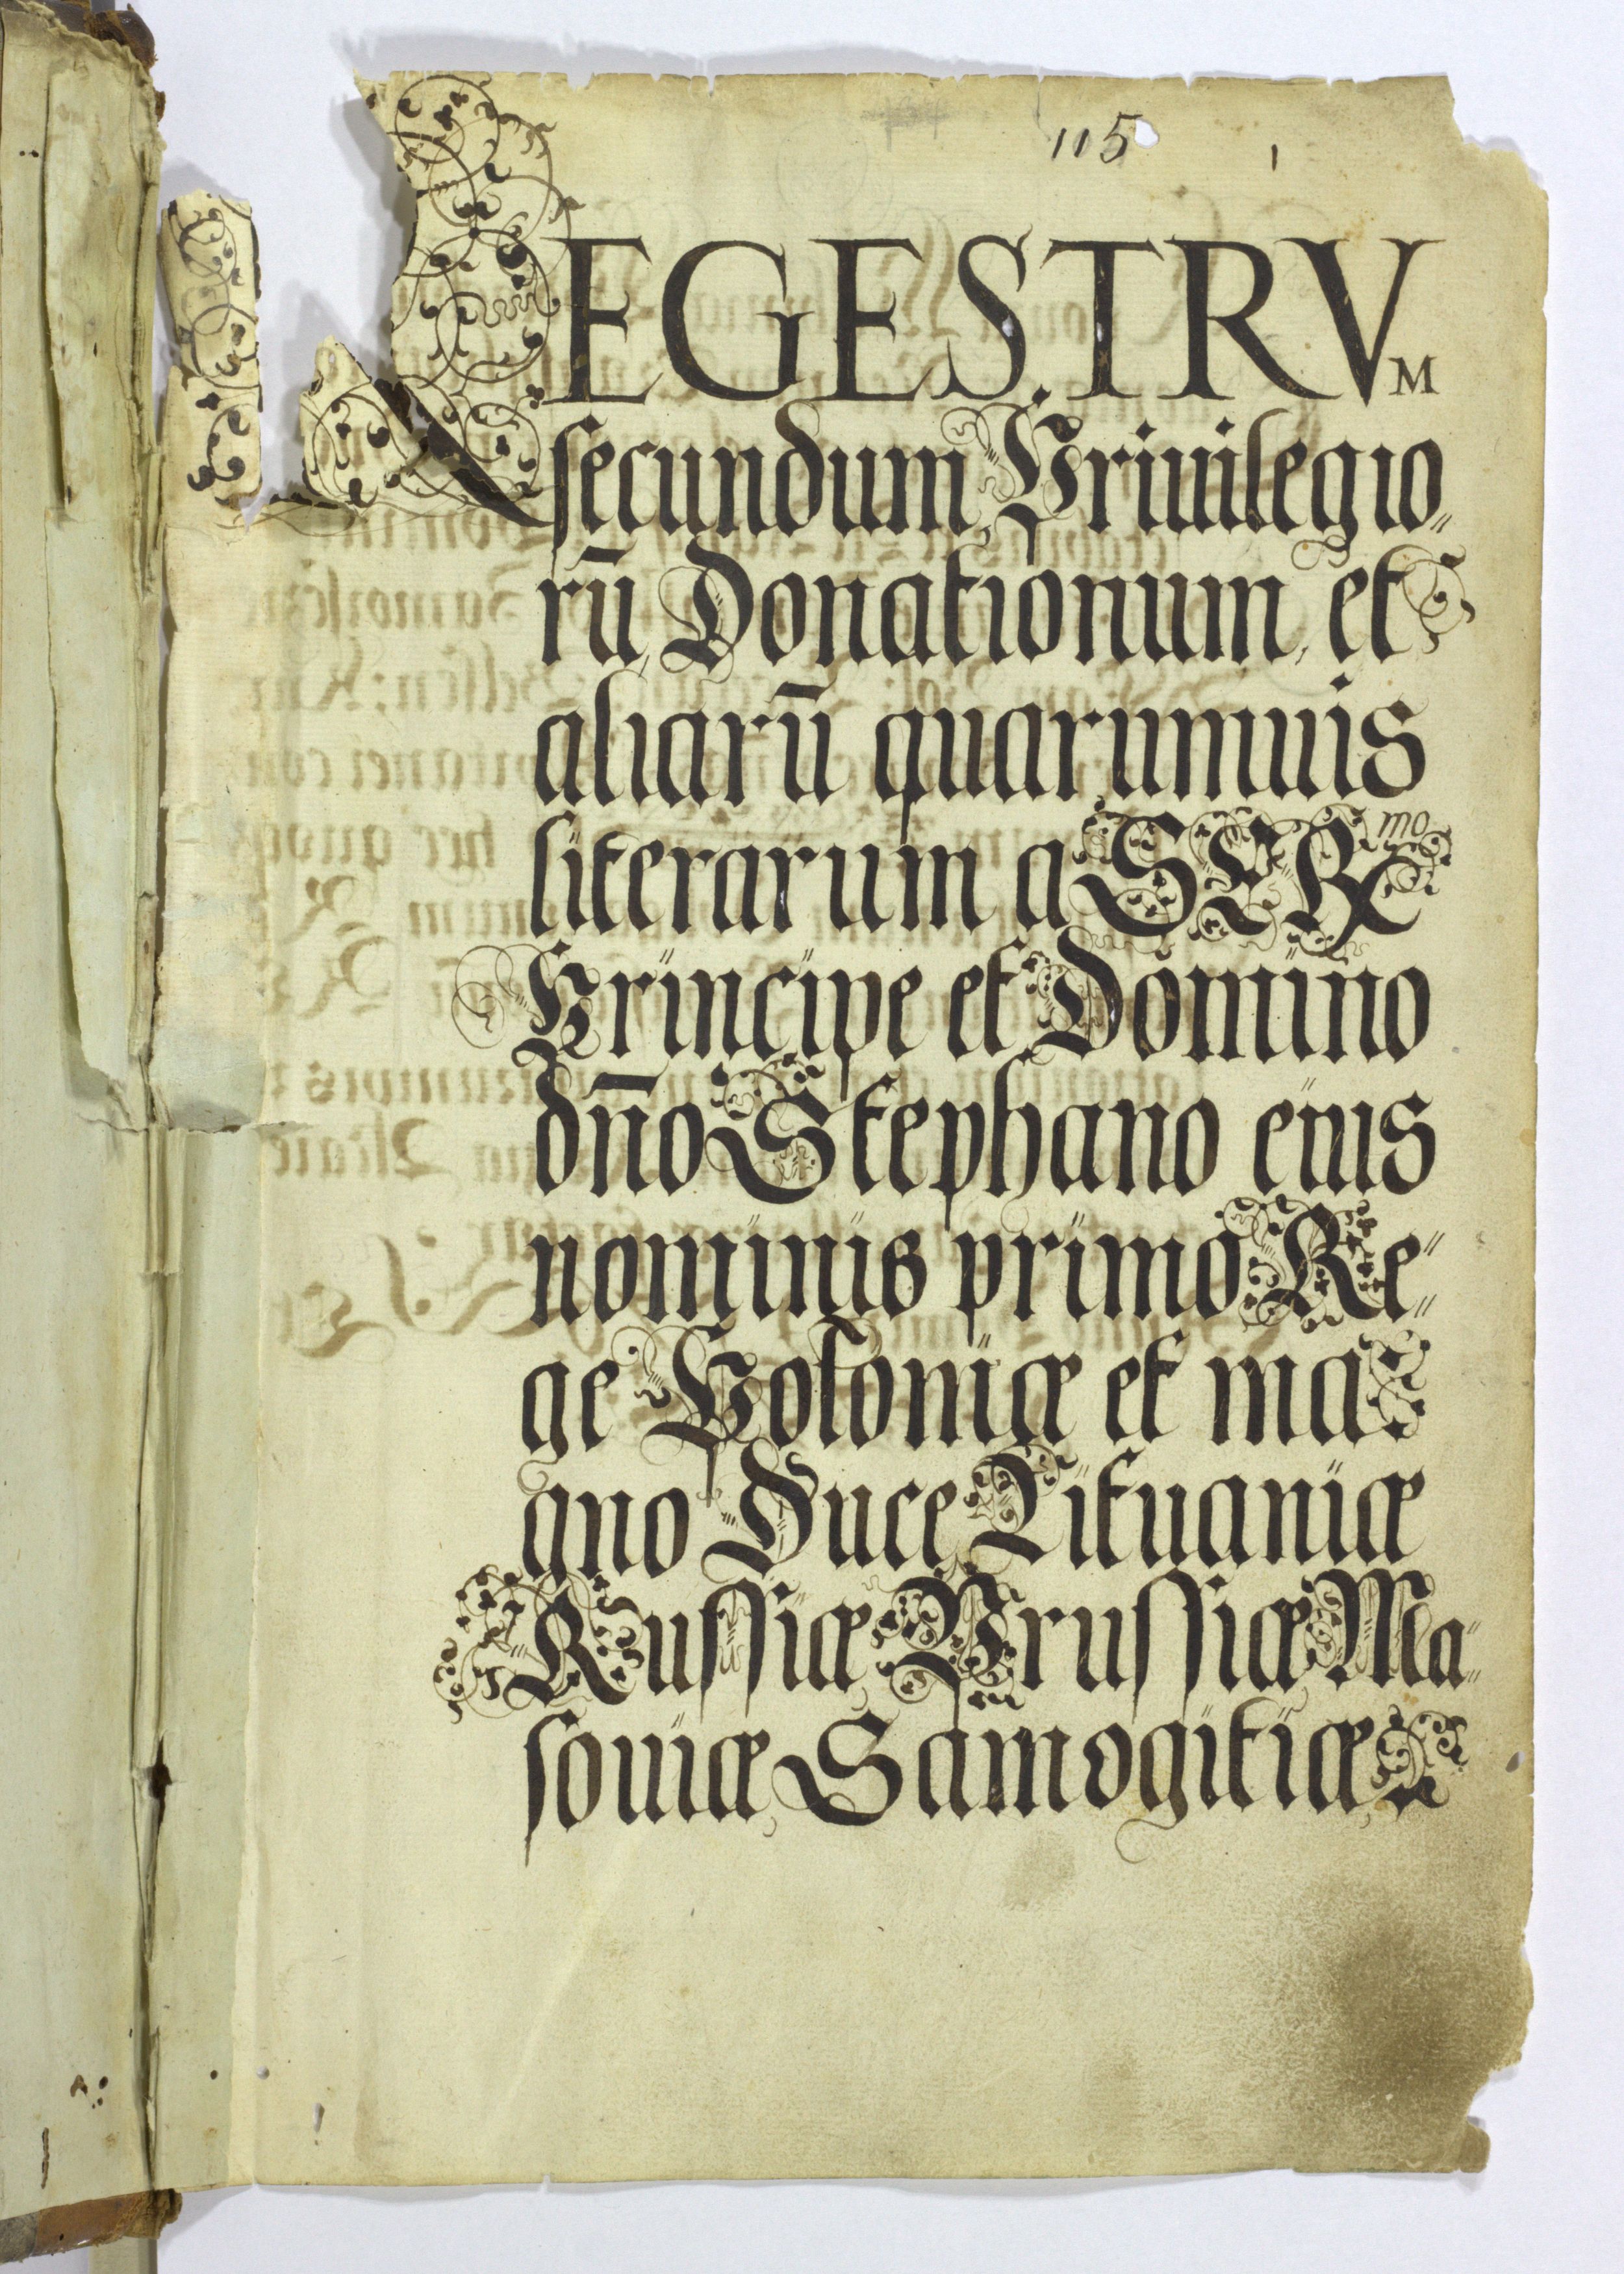 115
1
REGESTRVM
secundum Priuilegio„
rū Donationum, et
aliarū quarumuis
literarum a SER^mo
Principe et Domino
dn̄o Stephano eius
nominis primo Re„
ge Poloniæ et ma
gno Duce Lituaniæ
Russiæ Prussiæ Ma„
souiæ, Samogitiæ